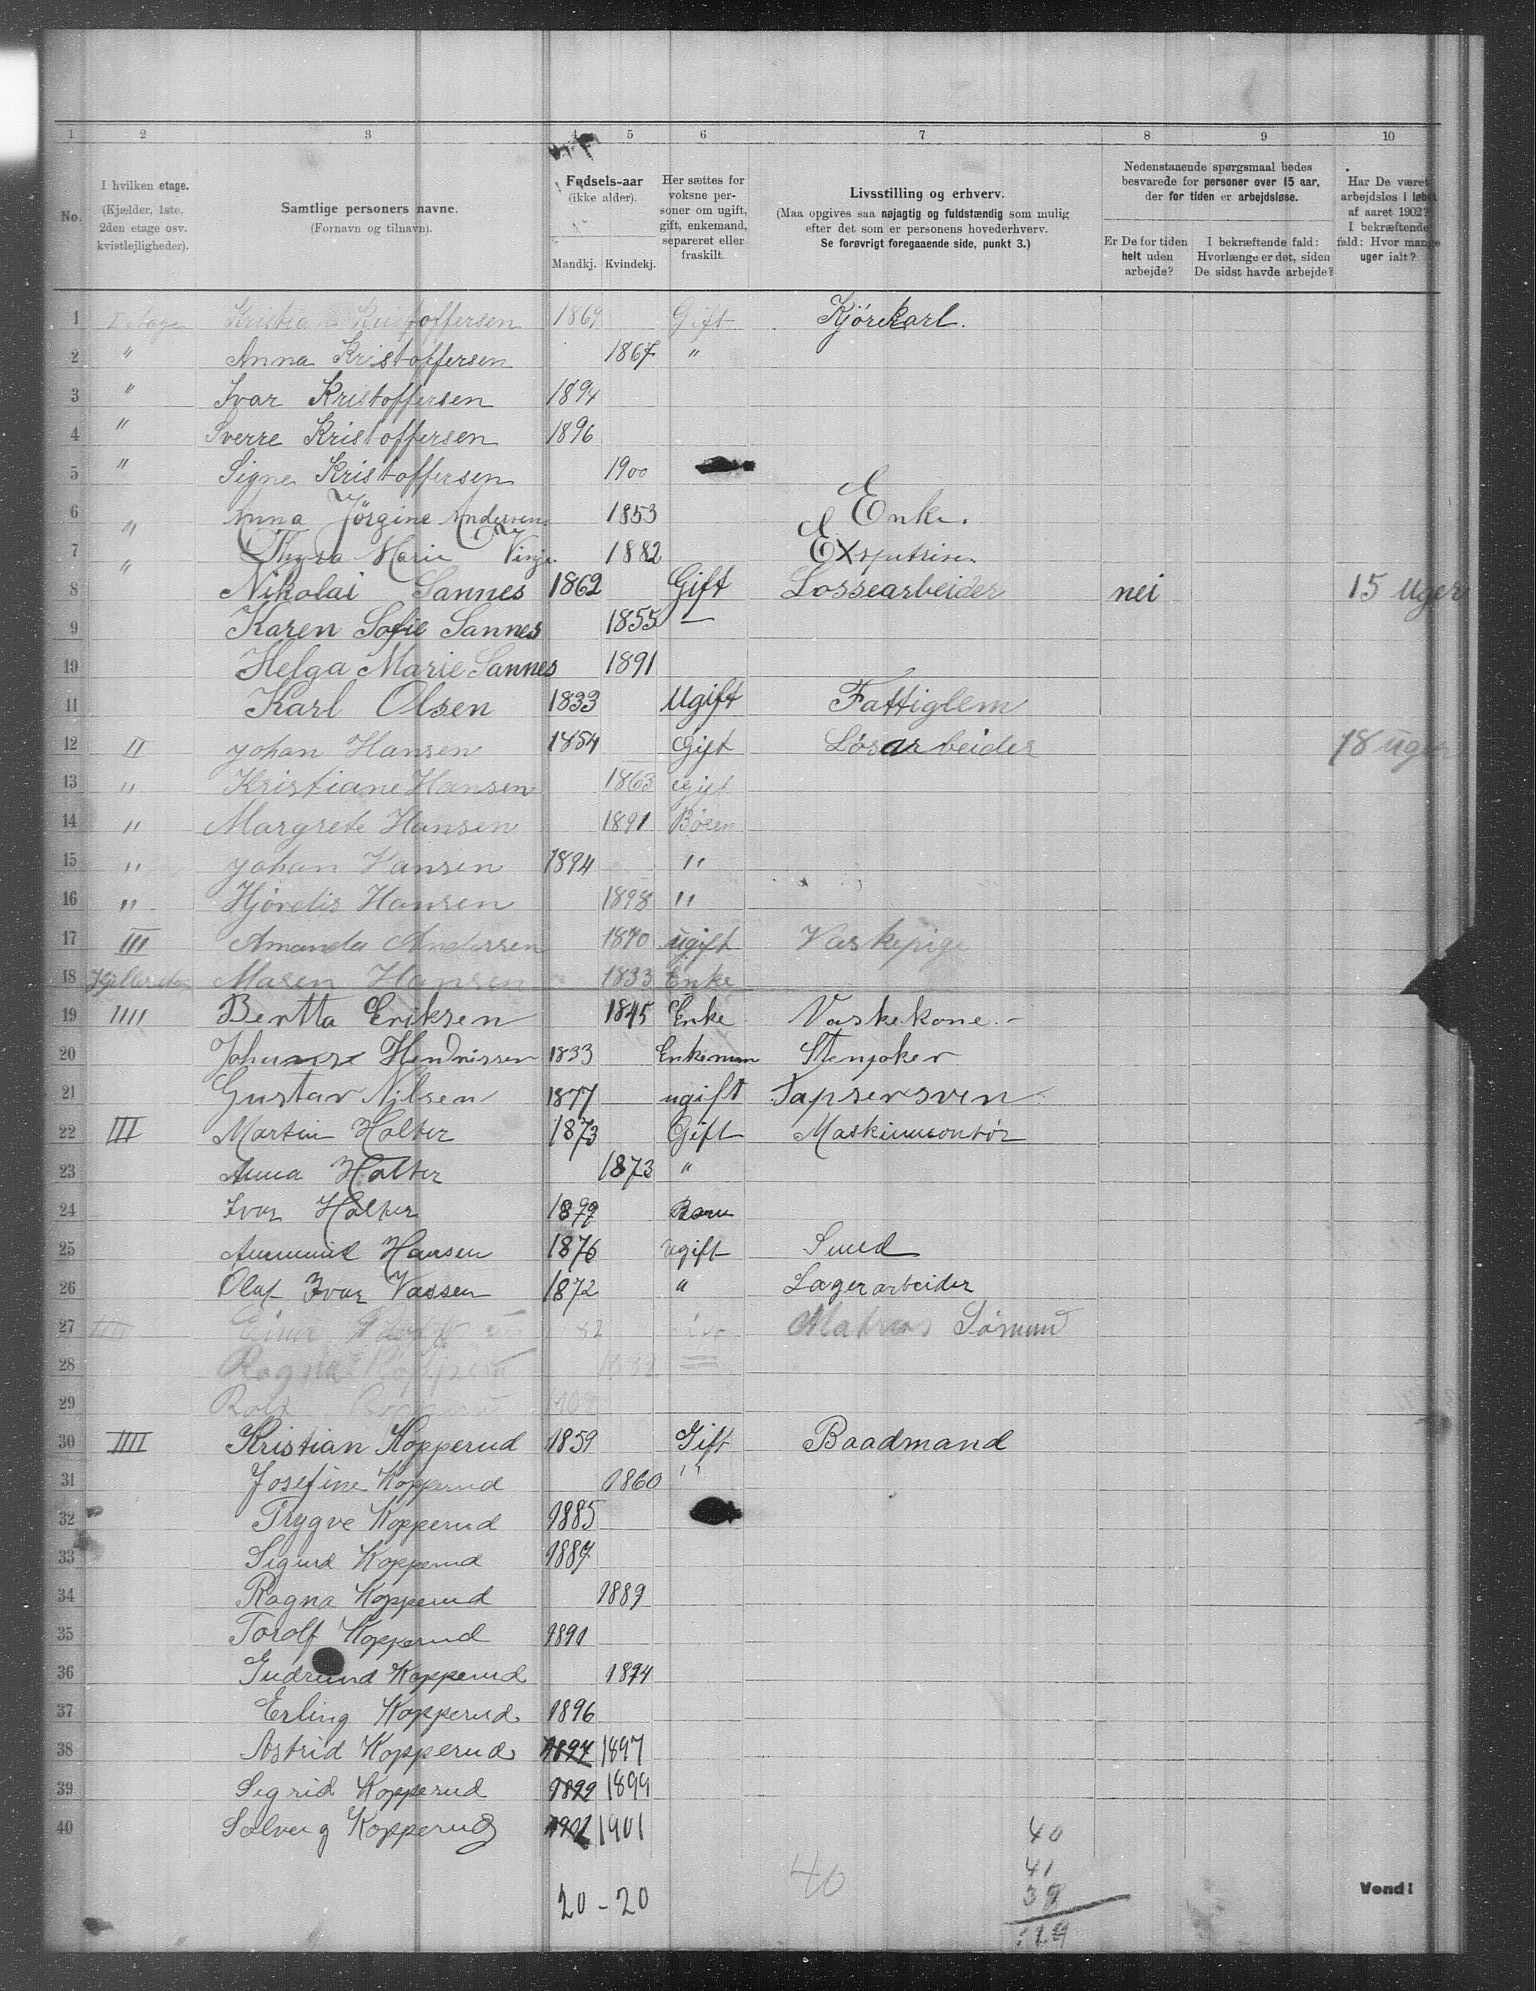 1 2 3 4 5 6 7 8 9 10
No.
I hvilken etage.
(Kjælder, 1ste.
2den etage osv.
kvistlejligheder).
Samtlige personers navne.
(Fornavn og tilnavn).
Fødsels-aar
(ikke alder).
Mandkj. Kvindekj.
Her sættes for
voksne per-
soner om ugift,
gift, enkemand,
separeret eller
fraskilt.
Livsstilling og erhverv.
(Maa opgives saa nøjagtig og fuldstændig som mulig
efter det som er personens hovederhverv.
Se forøvrigt foregaaende side, punkt 3.)
Nedenstaaende spørgsmaal bedes
besvarede for personer over 15 aar,
der for tiden er arbejdsløse.
Er De for tiden
helt uden
arbejde?
I bekræftende fald:
Hvorlænge er det, siden
De sidst havde arbejde?
Har De været
arbejdsløs i løbet
af aaret 1902?
I bekræftende
fald: Hvor mange
uger ialt?
1 Kristian Kristoffersen 1869 Gift Kjörekarl.
2 " Anna Kristoffersen 1867 "
3 " Ivar Kristoffersen 1894
4 " Sverre Kristoffersen 1896
5 " Signe Kristoffersen 1900
6 " Anna Jörgine Andersen 1853 Enke.
7 " Thyra Marie Vinje 1882
8 Nikolai Sannes 1862 Gift Lossearbeider nei 15 Uger
9 Karen Sofie Sannes 1855 —
10 Helga Marie Sannes 1891
11 Karl Olsen 1833 Ugift Fattiglem
12 II Johan Hansen 1854 Gift Lösarbeider 18 uger
13 " Kristiane Hansen 1863 Gift
14 " Margrete Hansen 1891 Børn
15 " Johan Hansen 1894 "
16 " Hjördis Hansen 1898 "
17 III Amanda Andersen 1870 ugift Vaskepige
18 Maren Hansen 1833 Enke
19 IIII Bertta Eriksen 1845 Enke Vaskekone.
20 1833 Enkeman
21 Gustav Nilsen 1877 ugift Tapsersven
22 III Martin Holter 1873 Gift
23 Anna Holter 1873 "
24 Ivar Holter 1899 Barn
25 Hansen 1876 ugift Smed
26 Olaf Ivar Vassen 1872 " Lagerarbeider
27 Matros Sömand
28 Ragna Kopperud
29 Rolf Kopperud
30 IIII Kristian Kopperud 1859 Gift Baadmand
31 Josefine Kopperud 1860 "
32 Trygve Kopperud 1885
33 Sigurd Kopperud 1887
34 Ragna Kopperud 1889
35 Torolf Kopperud 1891
36 Gudrund Kopperud 1894
37 Erling Kopperud 1896
38 Astrid Kopperud 1897 1897
39 Sigrid Kopperud 1899 1899
40 Solveig Kopperud 1901
20 - 20
40
40
41
Vend!